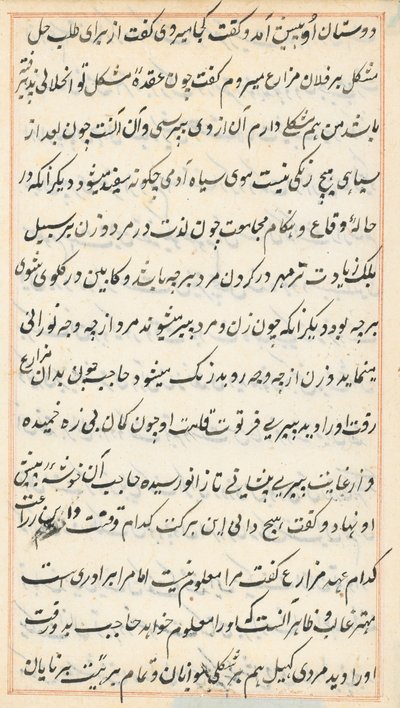 دوستان او پیش آمد و کفت کجا میروی کفت از برای طلب حل
مشکل بر فلان مزارع میروم کفت چون عقدهٔ مشکل تو انحلالی پذیرفته
باشد من هم مشکلی دارم آن از وی بپرسی و آن آنست چون بعد از
سیاهی هیچ رنکی نیست موی سیاه آدمی چکونه سفید میشود دیکر آنکه در
حالهٔ وقاع و هنکام مجامعت چون لذت در مرد و زن بر سبیل
زیادت تر مهر در کردن مرد بر چه باشد و کابین در کلوی شوی
بر چه بود دیکر آنکه چون زن و مرد پیر میشوند مرد از چه وجه نورانی
مینماید و زن از چه وجه روبد رنک میشود حاجب چون بدان مزارع
رفت او را دید پیری فرتوت قامت او چون کمان بی زه خمیده
و از غایت پیری پیشانی تا زانو رسیده حاجب آن خوشه را پیش
او نهاد و کفت هیچ دانی این برکت کدام وقت و این زراعت
کدام عهد مزارع کفت مرا معلوم نیست اما مرا برادری ست
مهتر غالب و ظاهر آنست که او را معلوم خواهد حاجب بدو رفت
او را دید مردی کهیل هم بر شکل جوانان و تمام بر هیئت برنایان